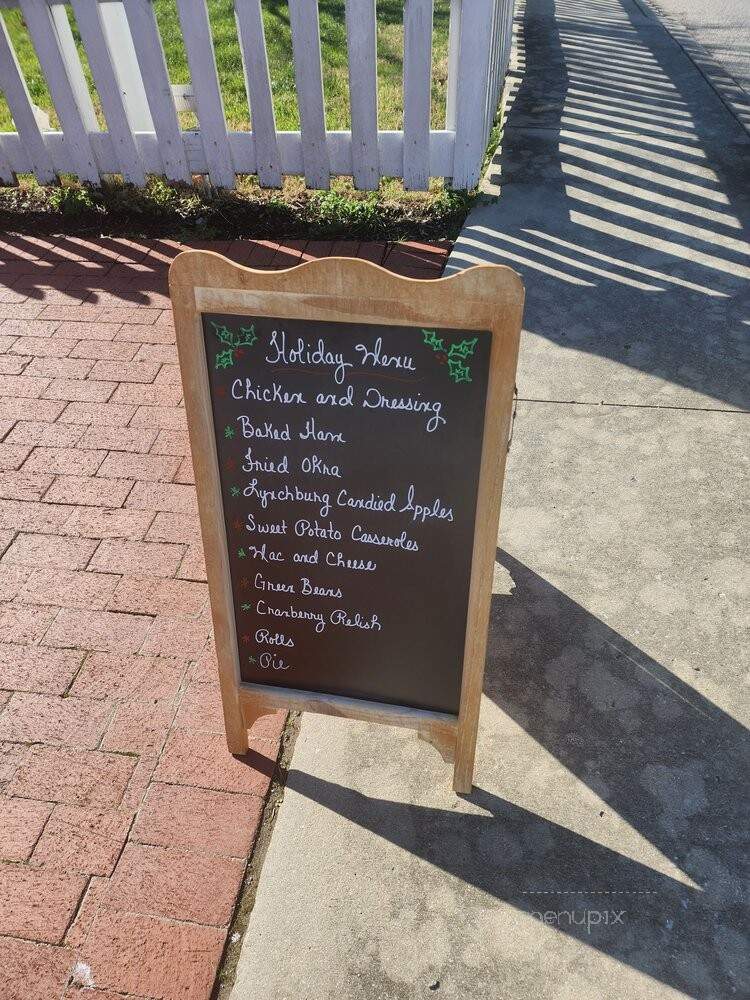 Holiday Menu
Chicken and Dressing
Baked Ham
Fried Okra
Lynchburg Candied Apples
Sweet Potato Casseroles
Mac and Cheese
Green Beans
Cranberry Relish
Rolls
Pie
menupix